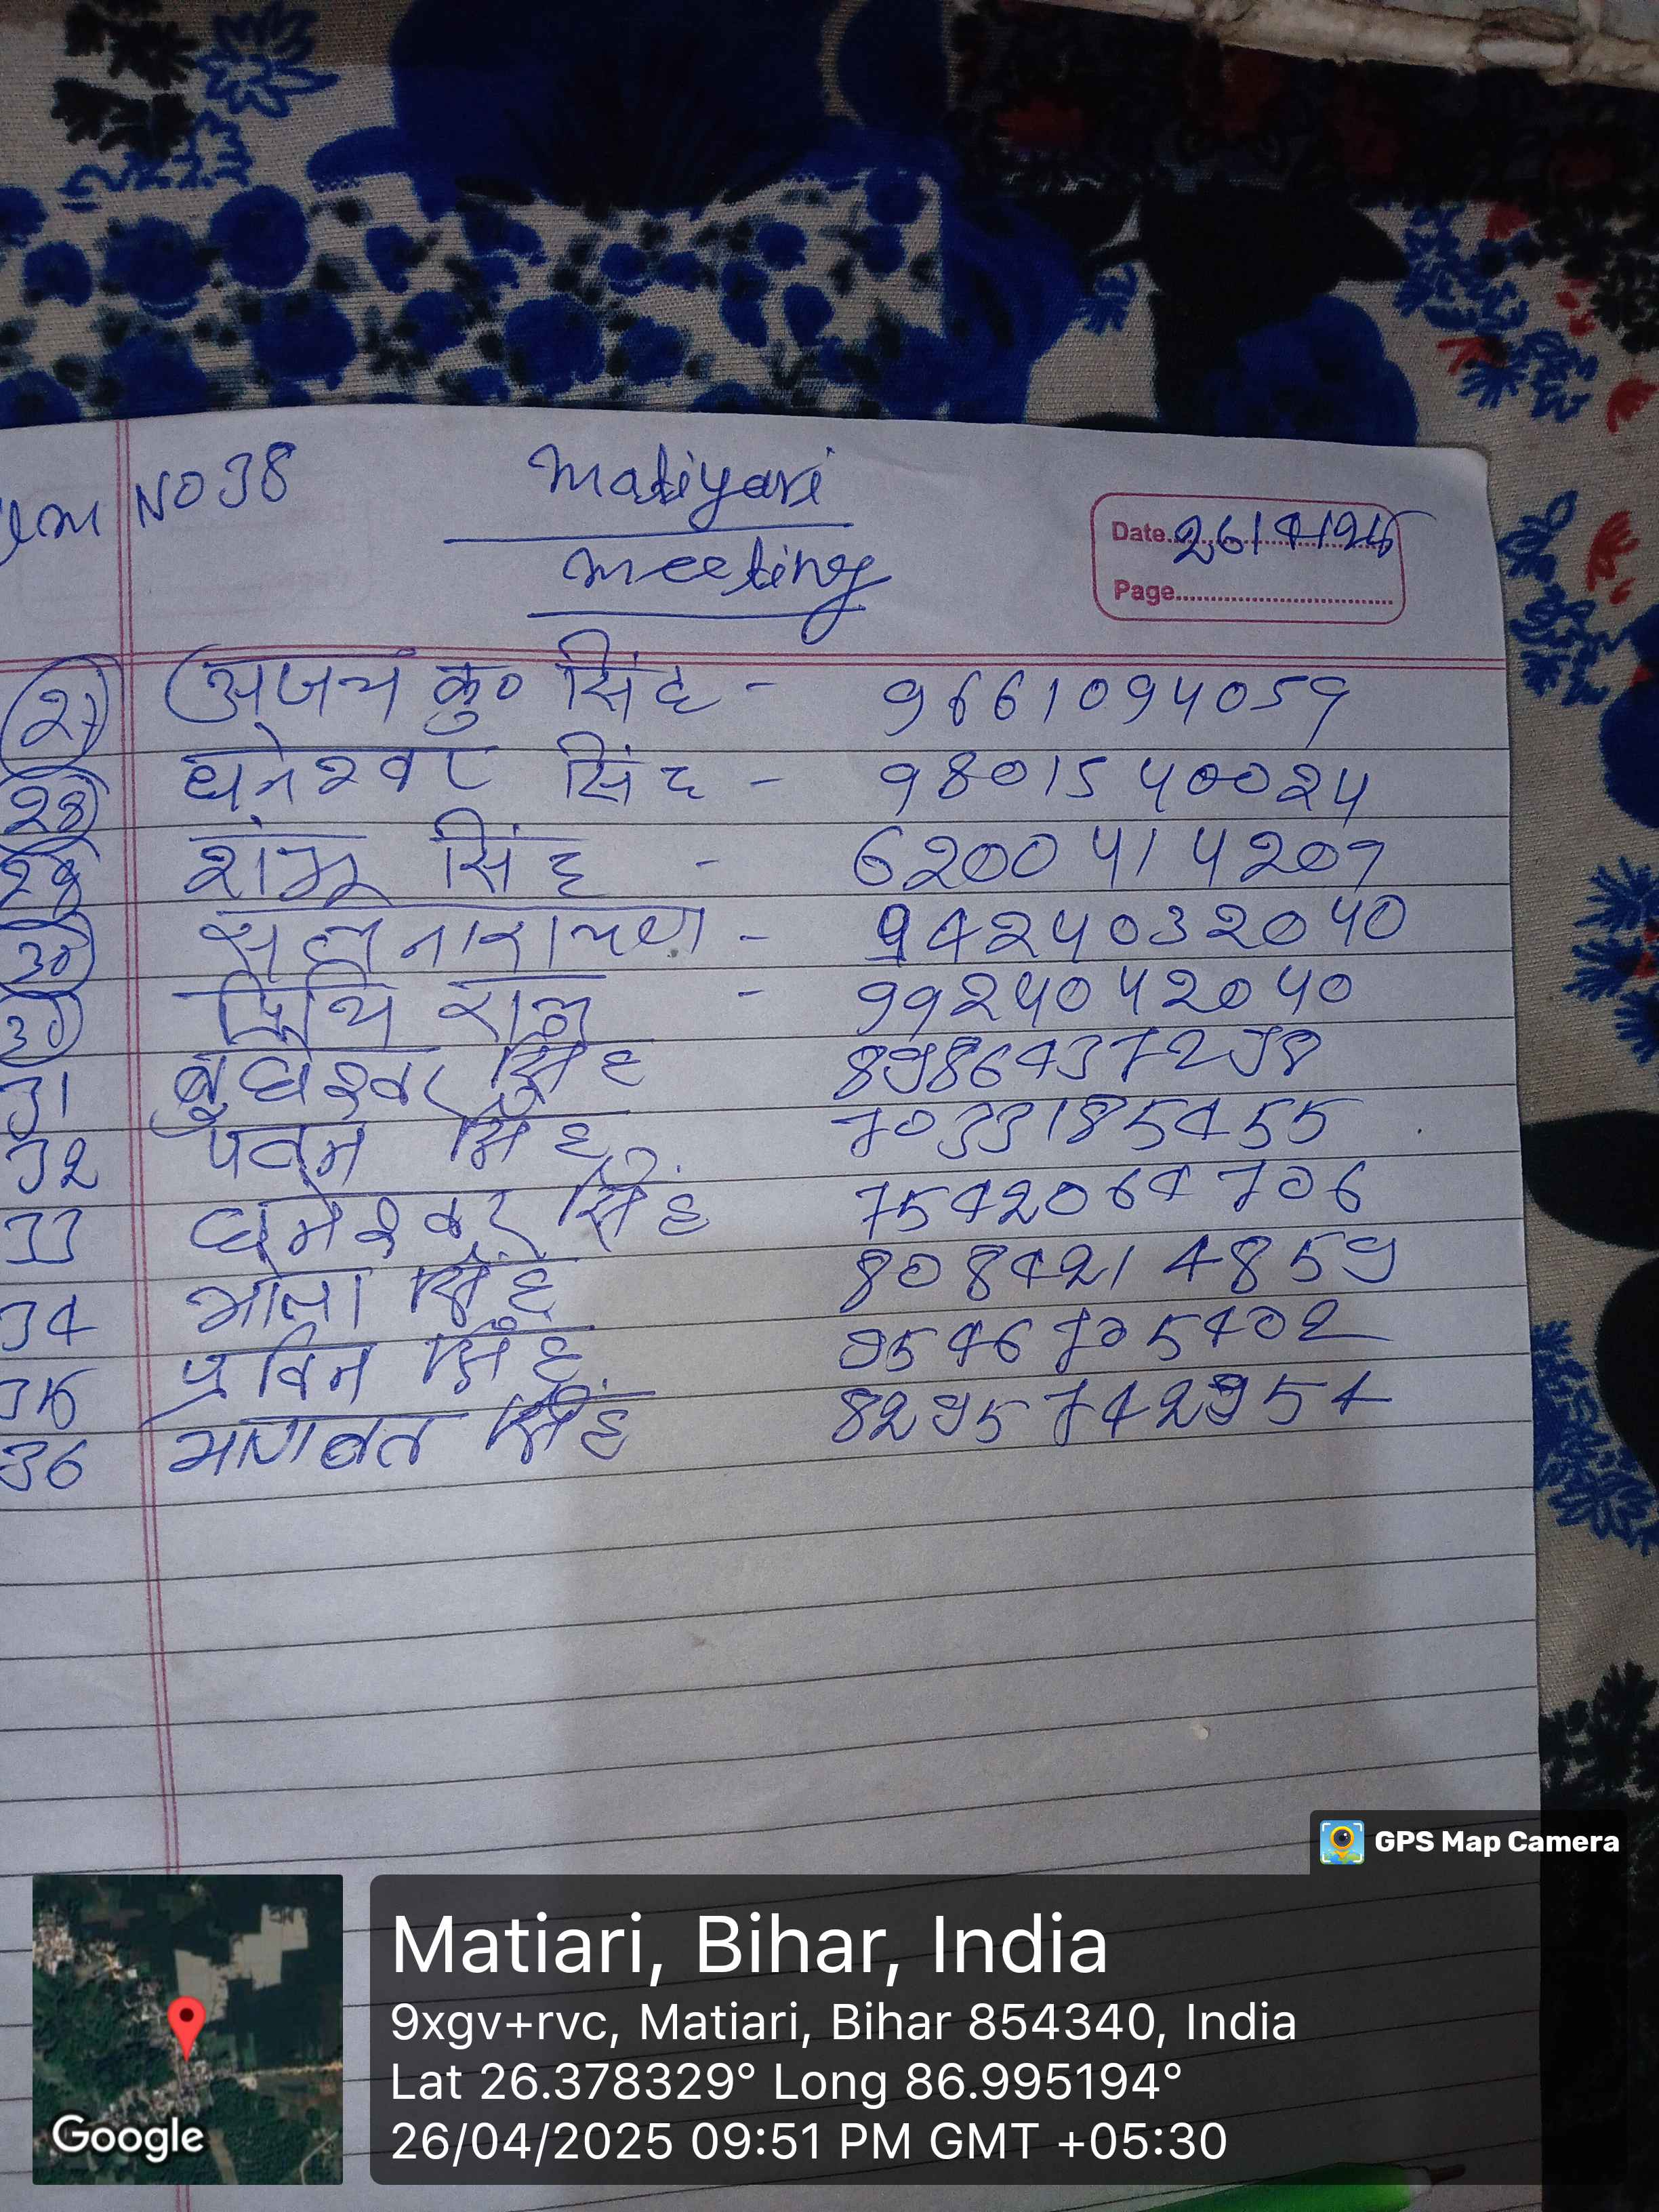 NO 38
Matiyari
meeting
Date 26/4/25
Page
27 अजय कु० सिंह - 9661094059
28 धनेश्वर सिंह - 9801540024
29 शंभू सिंह - 6200414207
30 सत्यनारायण - 9424032040
- 9924042040
31 बुधेश्वर सिंह 8986437298
32 पवन सिंह 7033185455
33 धनेश्वर सिंह 7542064706
34 भोला सिंह 8084214859
35 प्रविन सिंह 9546705402
36 भागवत सिंह
GPS Map Camera
Matiari, Bihar, India
9xgv+rvc, Matiari, Bihar 854340, India
Lat 26.378329° Long 86.995194°
26/04/2025 09:51 PM GMT +05:30
Google